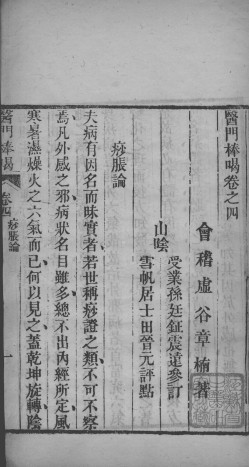 醫門棒喝卷之四
會稽虛谷章楠著
受業孫廷鉦震遠參訂
山陰
雪帆居士田晉元評點
痧脹論
夫病有因名而昧實者若世稱痧證之類不可不察
焉凡外感之邪病狀名目雖多總不出內經所定風
寒暑濕燥火之六氣而已何以見之蓋乾坤旋轉陰
醫門棒喝
卷四
痧脹論
一